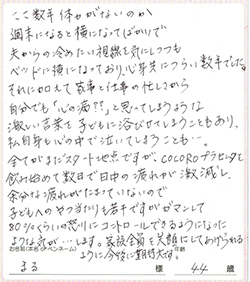 ここ数年体力がないのか
週末になると横になってばかりで
夫からの冷めたい視線を気にしつつも
ベッドに横になっており、心身共につらい数年でした。
それに加えて家事と仕事の忙しさから
自分でも「心の病??」と思ってしまうような
激しい言葉を子どもに浴びせてしまうこともあり、
私自身も心の中で泣いてしまうことも…。
全てがまだスタート地点ですが、COCOROプラセンタを
飲み始めて数日で日中の疲れが激減し、
余分な疲れがたまっていないので
子どもへのやつ当たりも若干ですがガマンして
80%くらいの怒りにコントロールできるようになった
ような気が…します。家族全員を笑顔にしてあげられる
ように今後に期待大です。
お名前(本名orペンネーム)
まる 様 44 歳